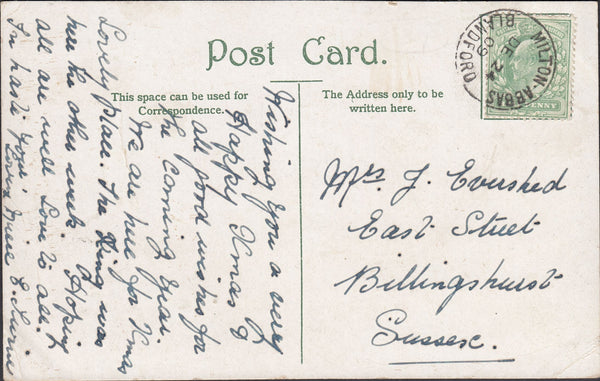 Post Card.
This space can be used for
Correspondence.
The Address only to be
written here.
MILTON-ABBAS
BLANDFORD
DE 24
09
PENNY
Wishing you a very
Happy Xmas &
all good wishes for
the coming year.
We are here for Xmas
Lovely place. The King was
here the other week. Hoping
all are well Love to all.
In haste Your
Loving
Mrs J. Evershed
East Street
Billingshurst
Sussex.